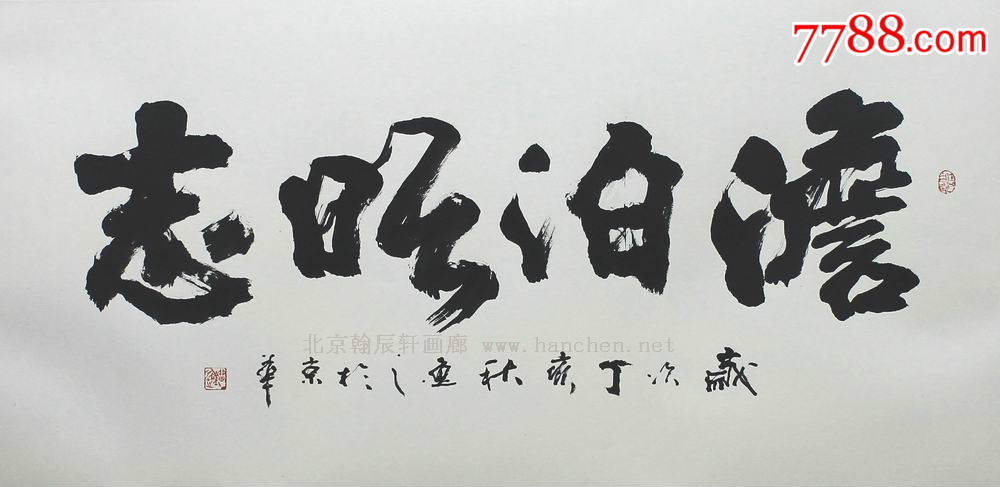 7788.com
澹泊明志
北京翰辰轩画廊 www.hanchen.net
歲次丁亥秋之於京華